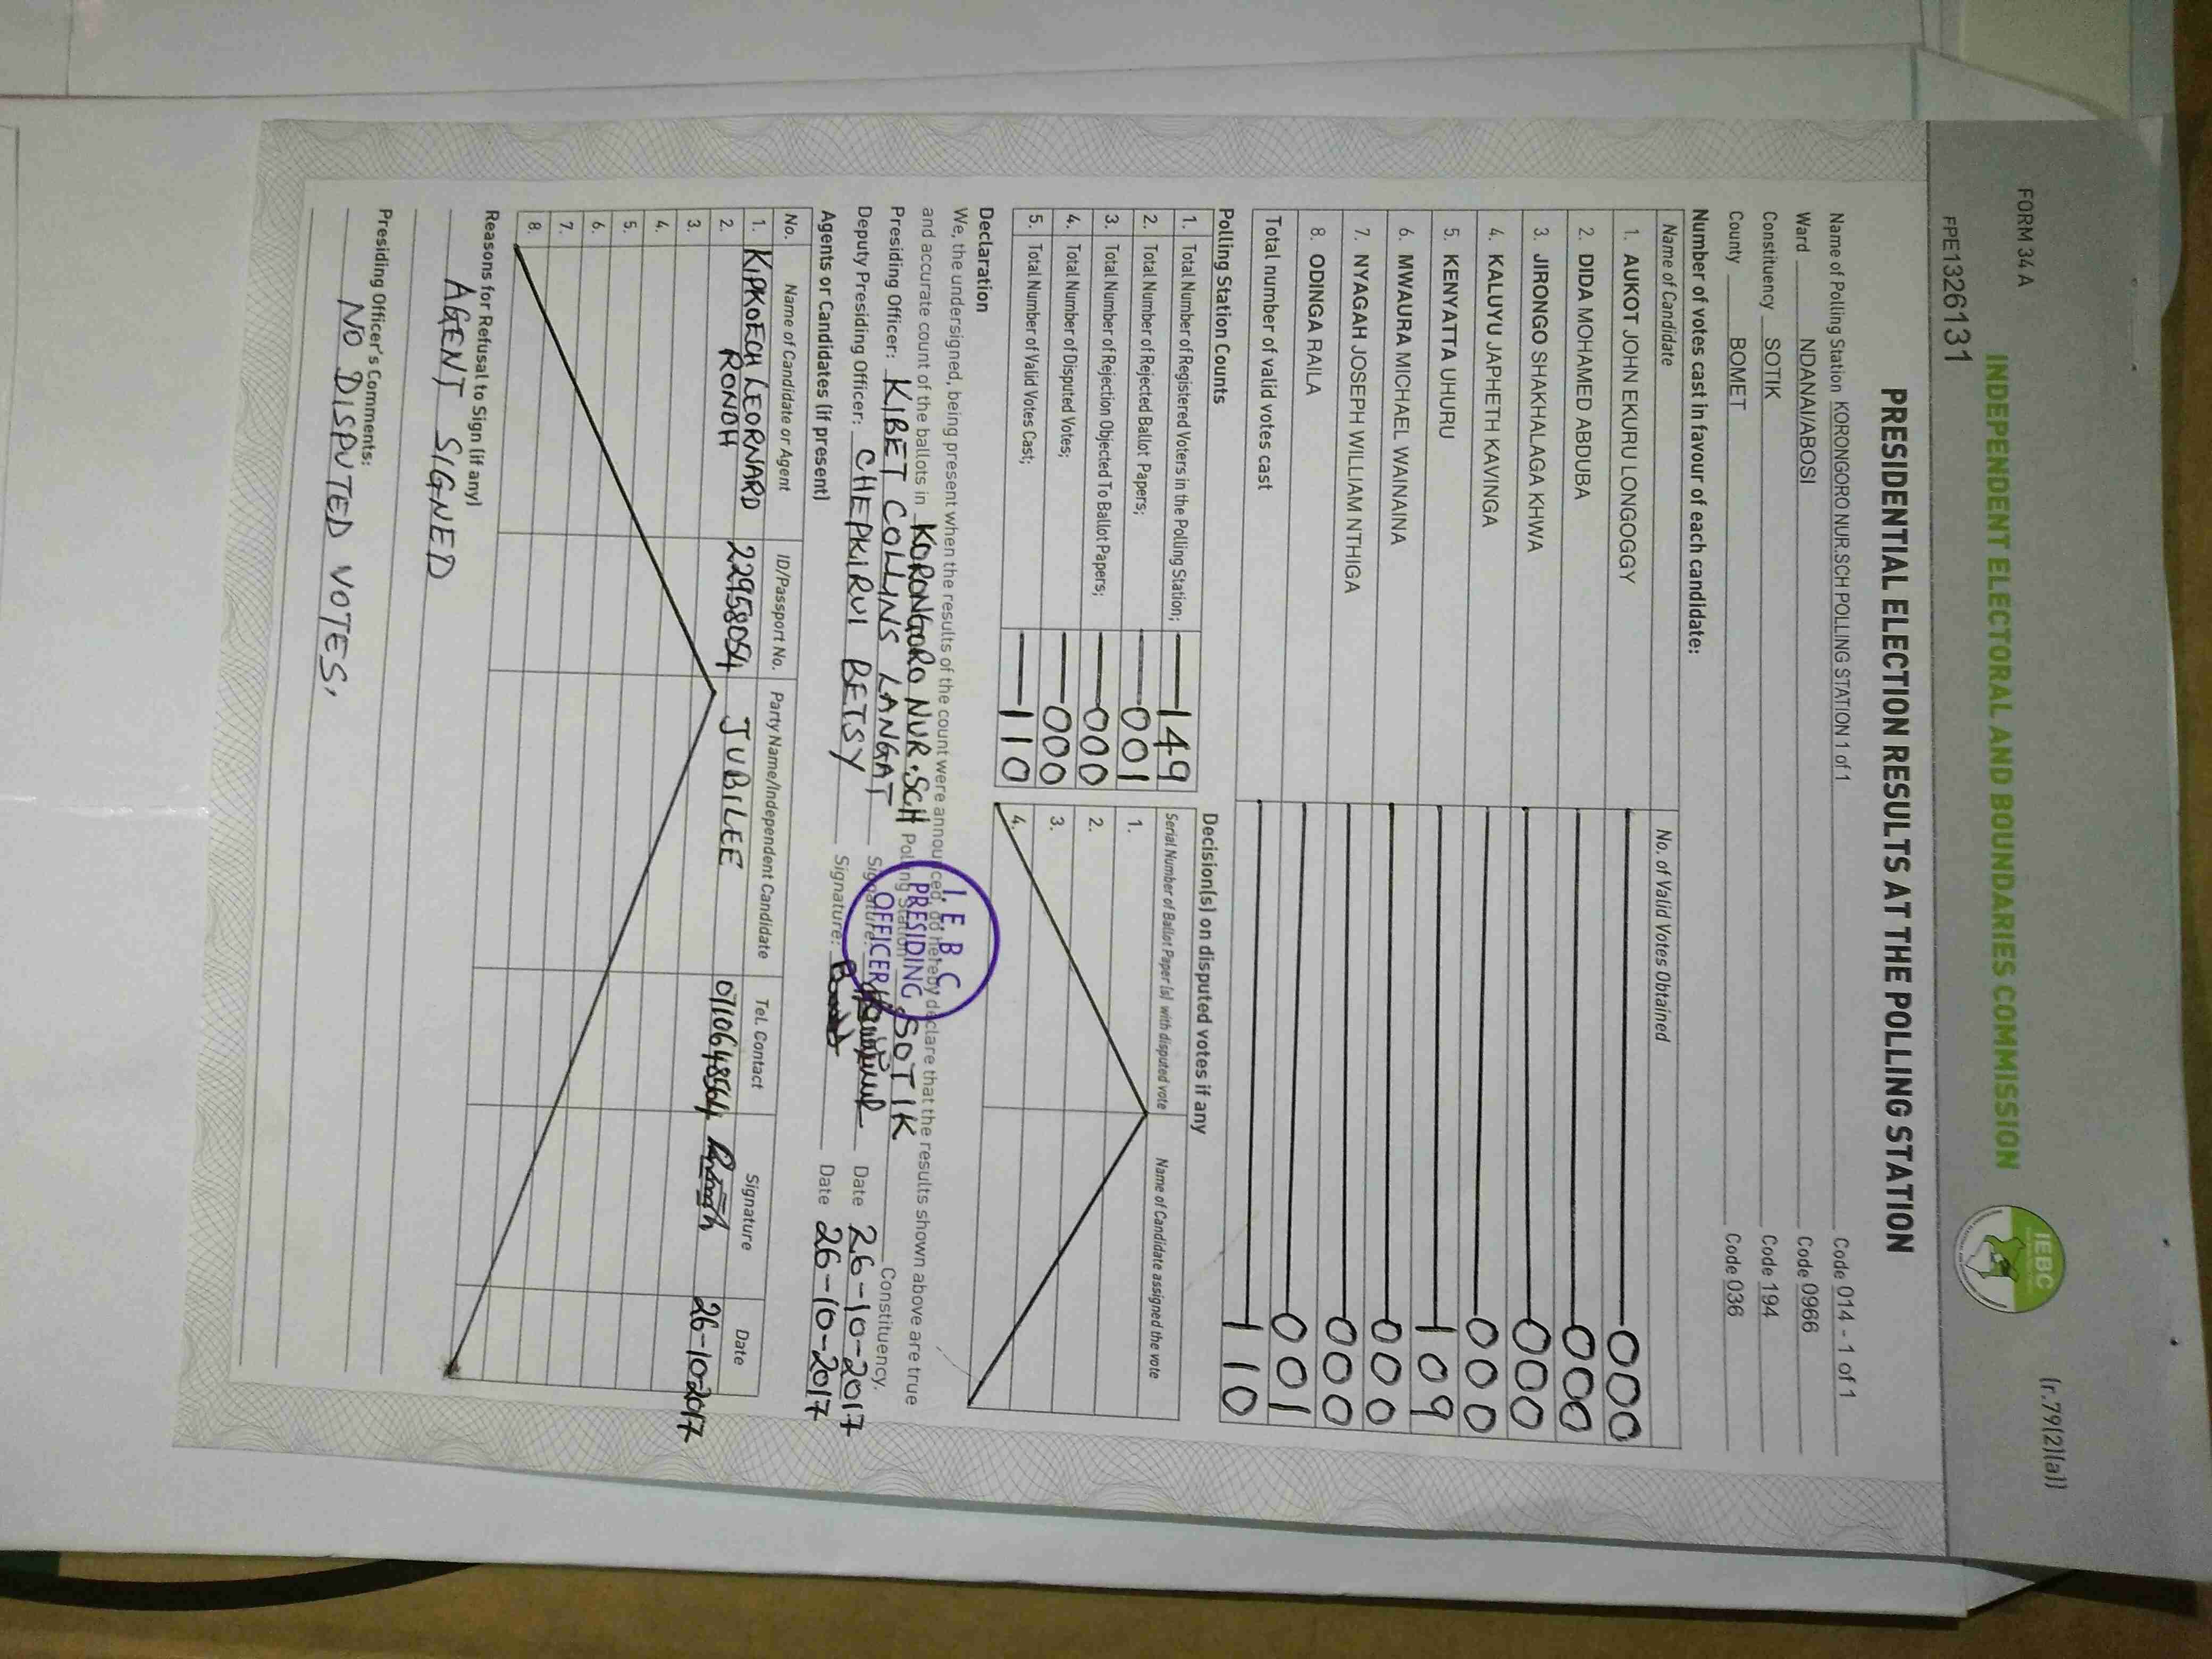 FORM 34 A
(r.79(2)(a))
INDEPENDENT ELECTORAL AND BOUNDARIES COMMISSION
IEBC
FPE1326131
PRESIDENTIAL ELECTION RESULTS AT THE POLLING STATION
Name of Polling Station KORONGORO NUR.SCH POLLING STATION 1 of 1 Code 014 - 1 of 1
Ward NDANAI/ABOSI Code 0966
Constituency SOTIK Code 194
County BOMET Code 036
Number of votes cast in favour of each candidate:
Name of Candidate No. of Valid Votes Obtained
1. AUKOT JOHN EKURU LONGOGGY 000
2. DIDA MOHAMED ABDUBA 000
3. JIRONGO SHAKHALAGA KHWA 000
4. KALUYU JAPHETH KAVINGA 000
5. KENYATTA UHURU 109
6. MWAURA MICHAEL WAINAINA 000
7. NYAGAH JOSEPH WILLIAM NTHIGA 000
8. ODINGA RAILA 001
Total number of valid votes cast 110
Polling Station Counts
1. Total Number of Registered Voters in the Polling Station; 149
2. Total Number of Rejected Ballot Papers; 001
3. Total Number of Rejection Objected To Ballot Papers; 000
4. Total Number of Disputed Votes; 000
5. Total Number of Valid Votes Cast; 110
Decision(s) on disputed votes if any
Serial Number of Ballot Paper (s) with disputed vote Name of Candidate assigned the vote
1.
2.
3.
4.
Declaration
We, the undersigned, being present when the results of the count were announced, do hereby declare that the results shown above are true
and accurate count of the ballots in KORONGORO NUR.SCH Polling Station SOTIK Constituency.
Presiding Officer: KIBET COLLINS LANGAT Signature: Date 26-10-2017
Deputy Presiding Officer: CHEPKIRUI BETSY Signature: Date 26-10-2017
I.E.B.C
PRESIDING
OFFICER
Agents or Candidates (if present)
No. Name of Candidate or Agent ID/Passport No. Party Name/Independent Candidate Tel. Contact Signature Date
1. KIPKOECH LEORNARD RONOH 22958054 JUBILEE 0710648564 26-10-2017
2.
3.
4.
5.
6.
7.
8.
Reasons for Refusal to Sign (if any)
AGENT SIGNED
Presiding Officer's Comments:
NO DISPUTED VOTES,